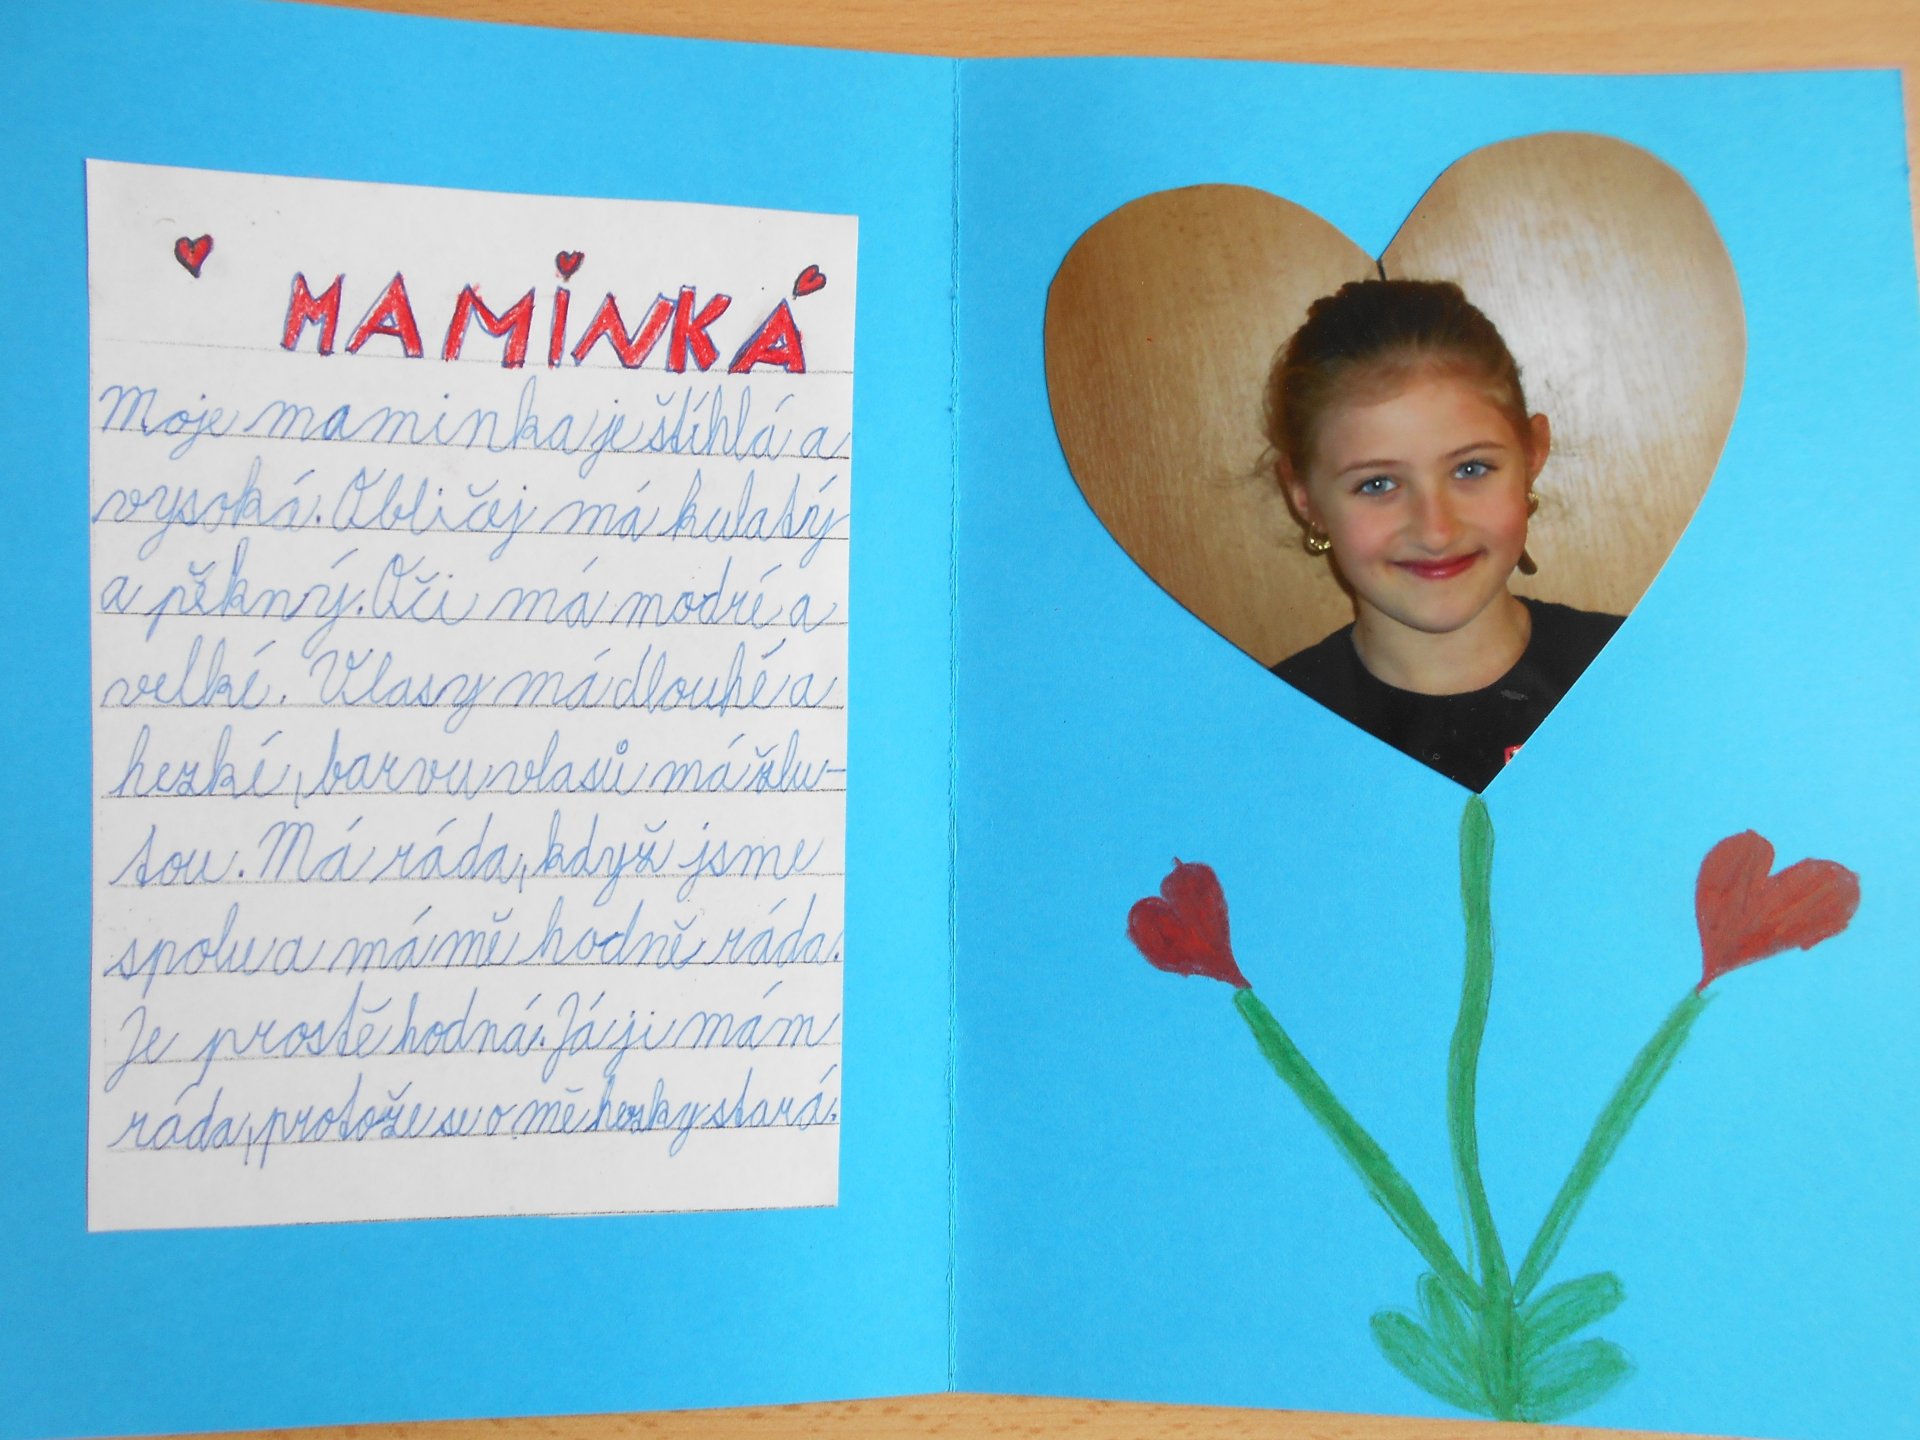 MAMINKA
Moje maminka je štíhlá a
vysoká. Obličej má kulatý
a pěkný. Oči má modré a
velké. Vlasy má dlouhé a
hezké, barvu vlasů má žlu-
tou. Má ráda, když jsme
spolu a má mě hodně ráda.
Je prostě hodná. Já ji mám
ráda, protože se o mě hezky stará.